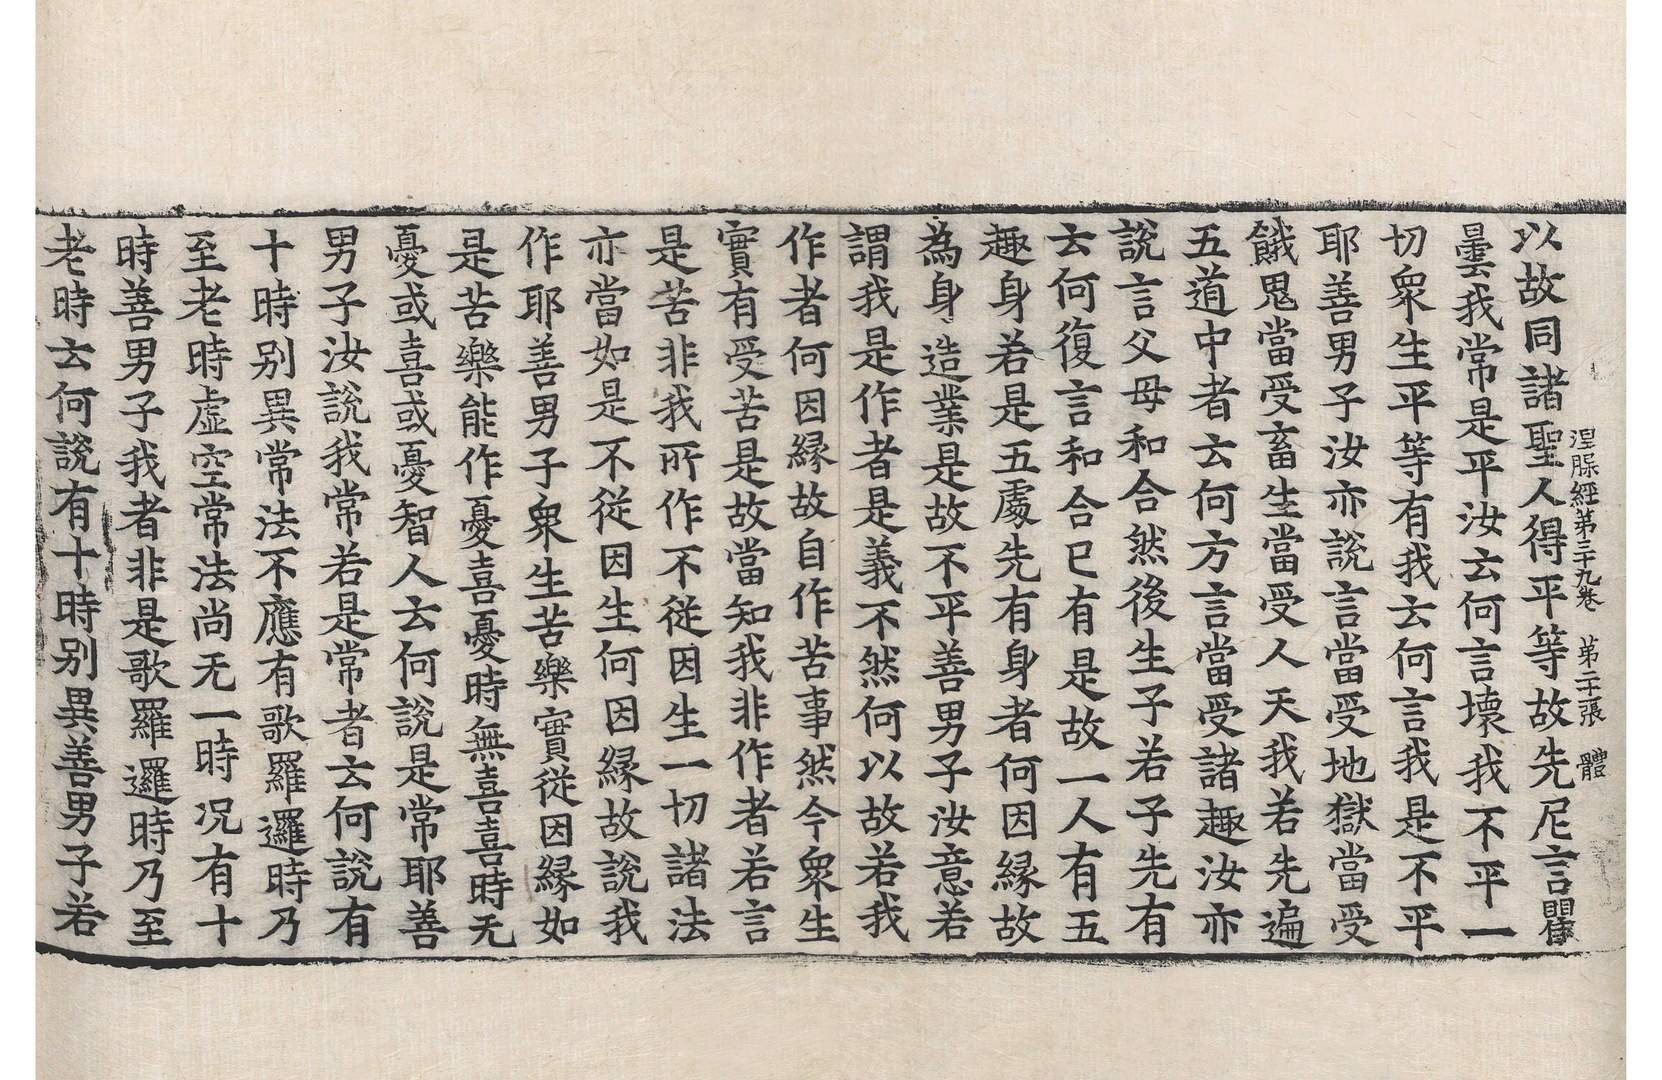 涅槃經第三十九卷 第二張 體
以故同諸聖人得平等故先尼言瞿
曇我常是平汝云何言壞我不平一
切衆生平等有我云何言我是不平
耶善男子汝亦說言當受地獄當受
餓鬼當受畜生當受人天我若先遍
五道中者云何方言當受諸趣汝亦
說言父母和合然後生子若子先有
云何復言和合已有是故一人有五
趣身若是五處先有身者何因緣故
為身造業是故不平善男子汝意若
謂我是作者是義不然何以故若我
作者何因緣故自作苦事然今衆生
實有受苦是故當知我非作者若言
是苦非我所作不從因生一切諸法
亦當如是不從因生何因緣故說我
作耶善男子衆生苦樂實從因緣如
是苦樂能作憂喜憂時無喜喜時无
憂或喜或憂智人云何說是常耶善
男子汝說我常若是常者云何說有
十時別異常法不應有歌羅邏時乃
至老時虛空常法尚无一時況有十
時善男子我者非是歌羅邏時乃至
老時云何說有十時別異善男子若